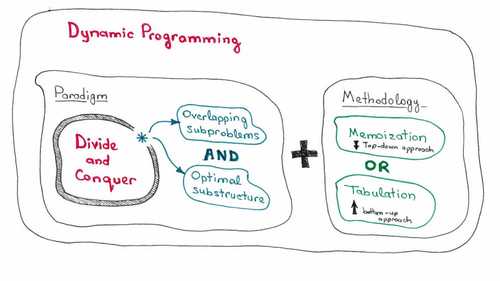 Dynamic Programming
Paradigm
Divide
and
Conquer
*
Overlapping
subproblems
AND
Optimal
substructure
+
Methodology
Memoization
⬇ Top-down approach
OR
Tabulation
⬆ bottom-up
approach